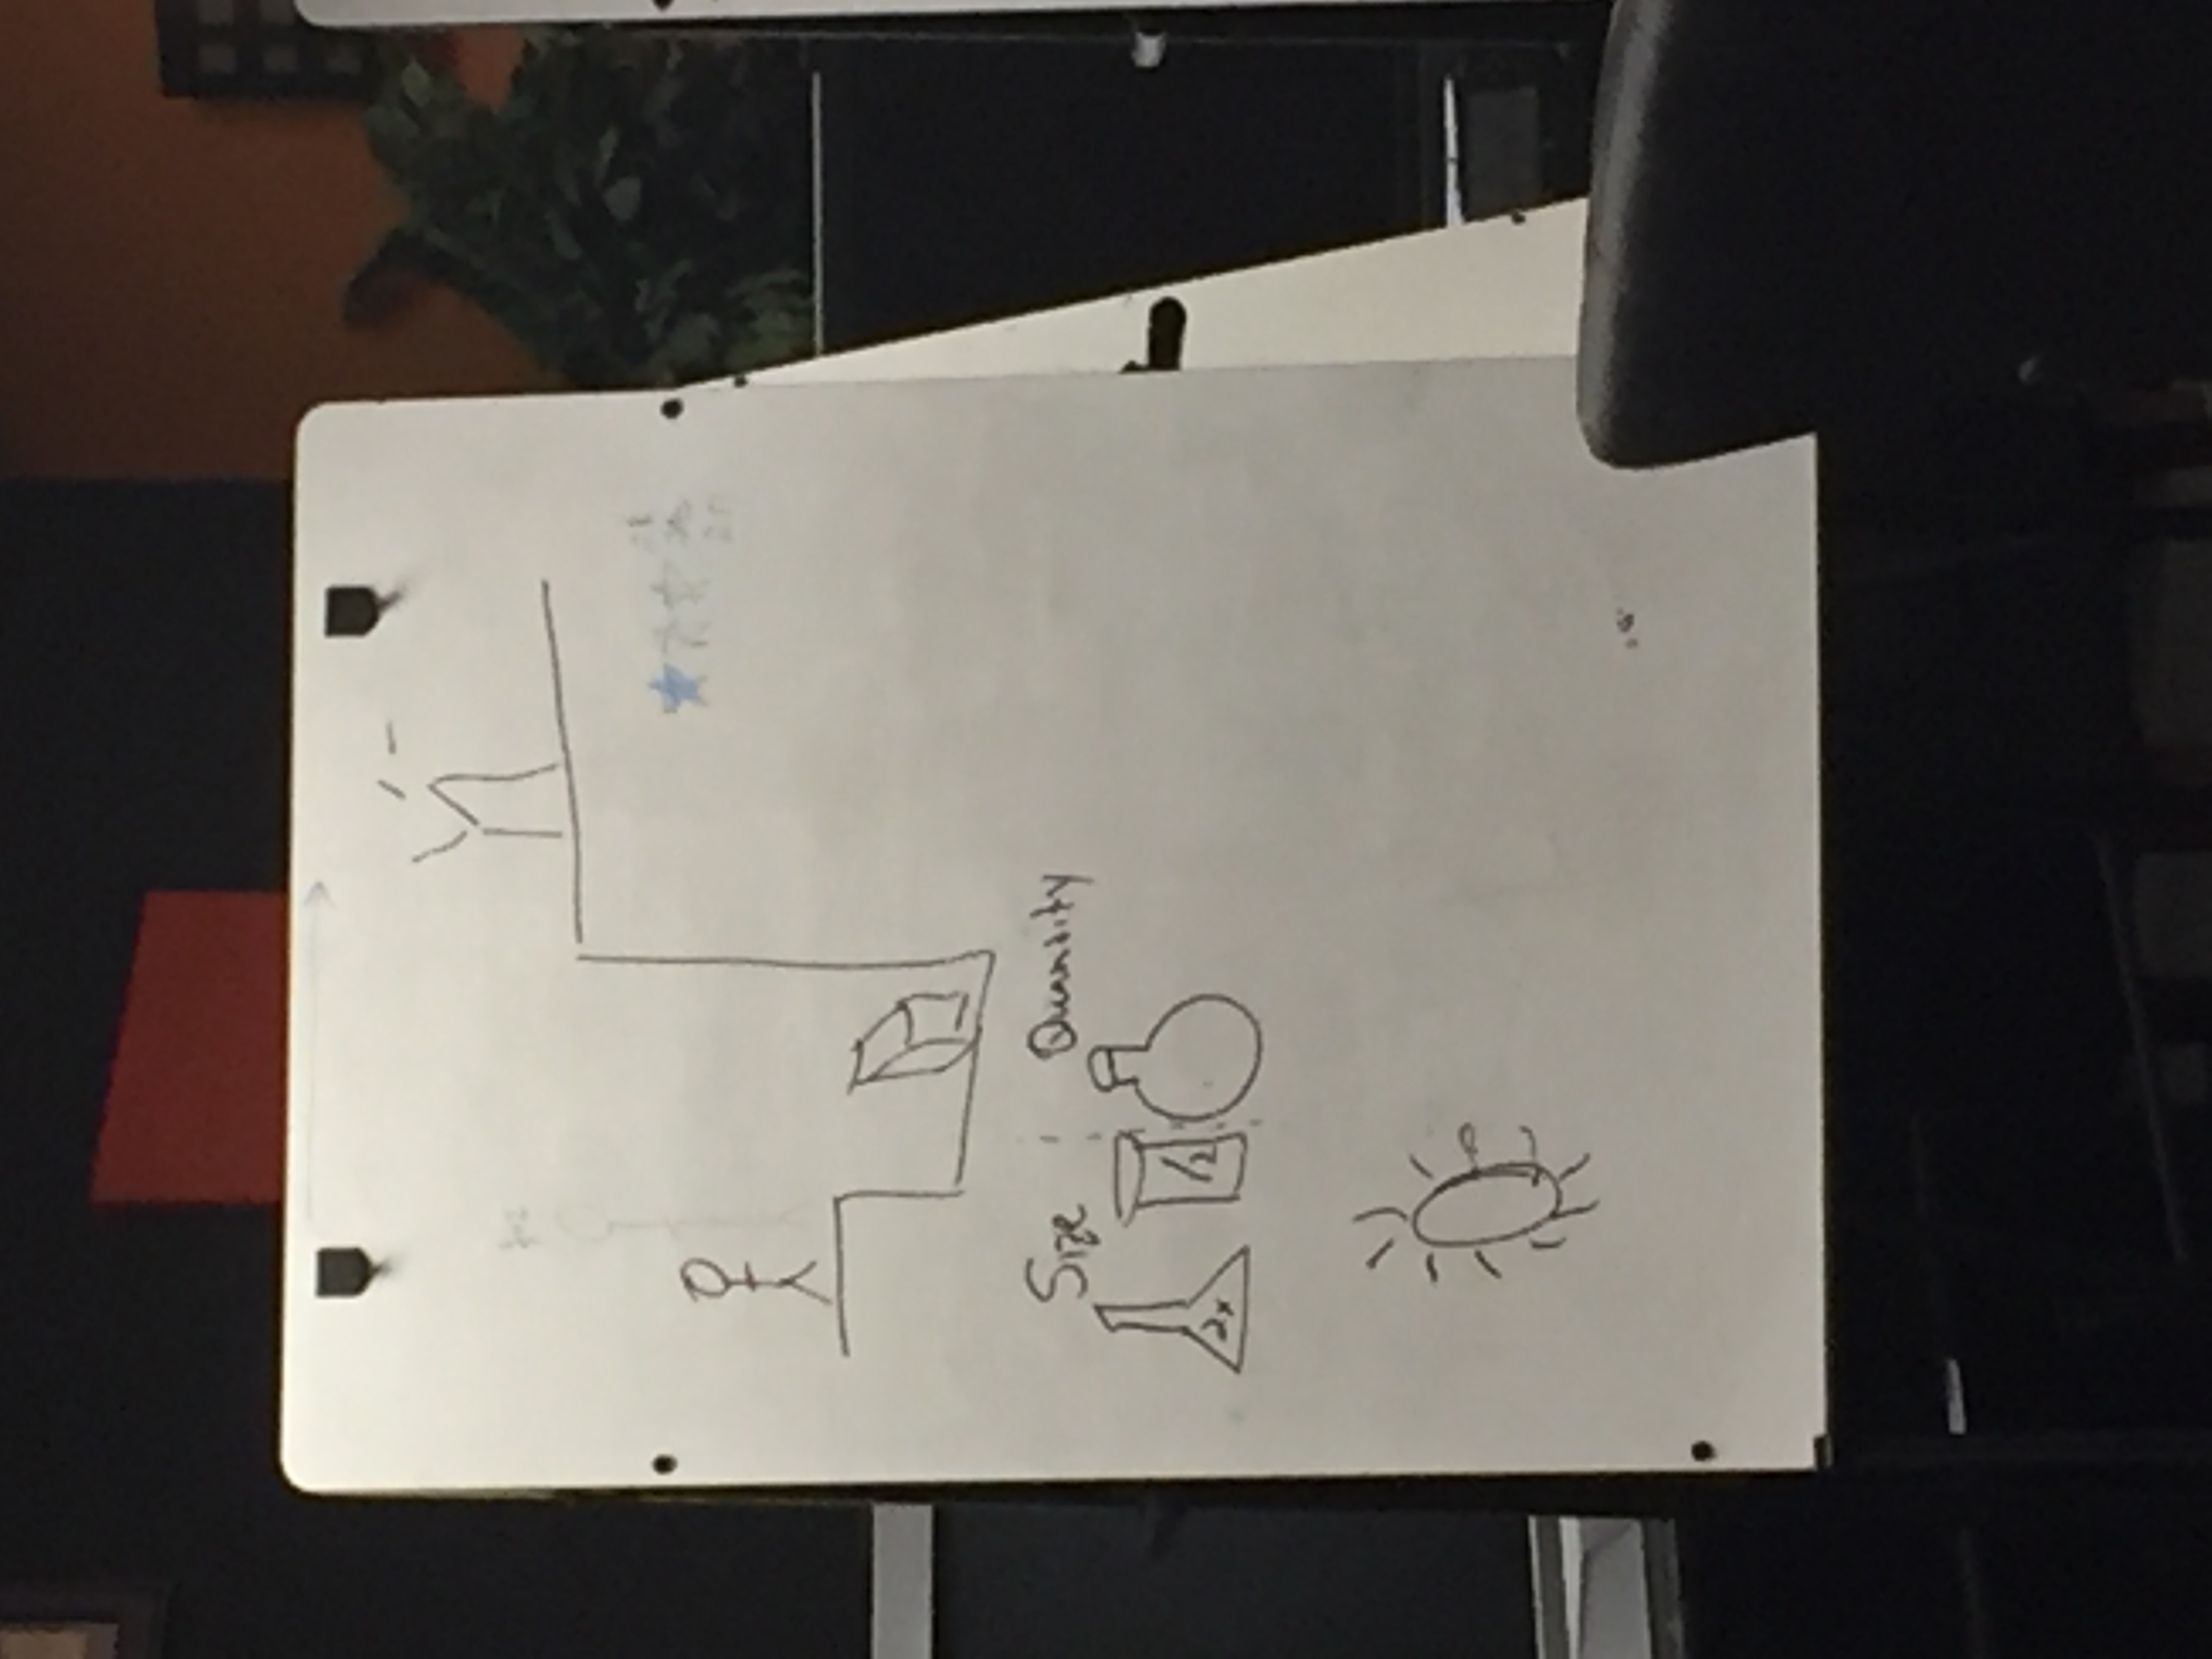 Size Quantity
2x 1/2